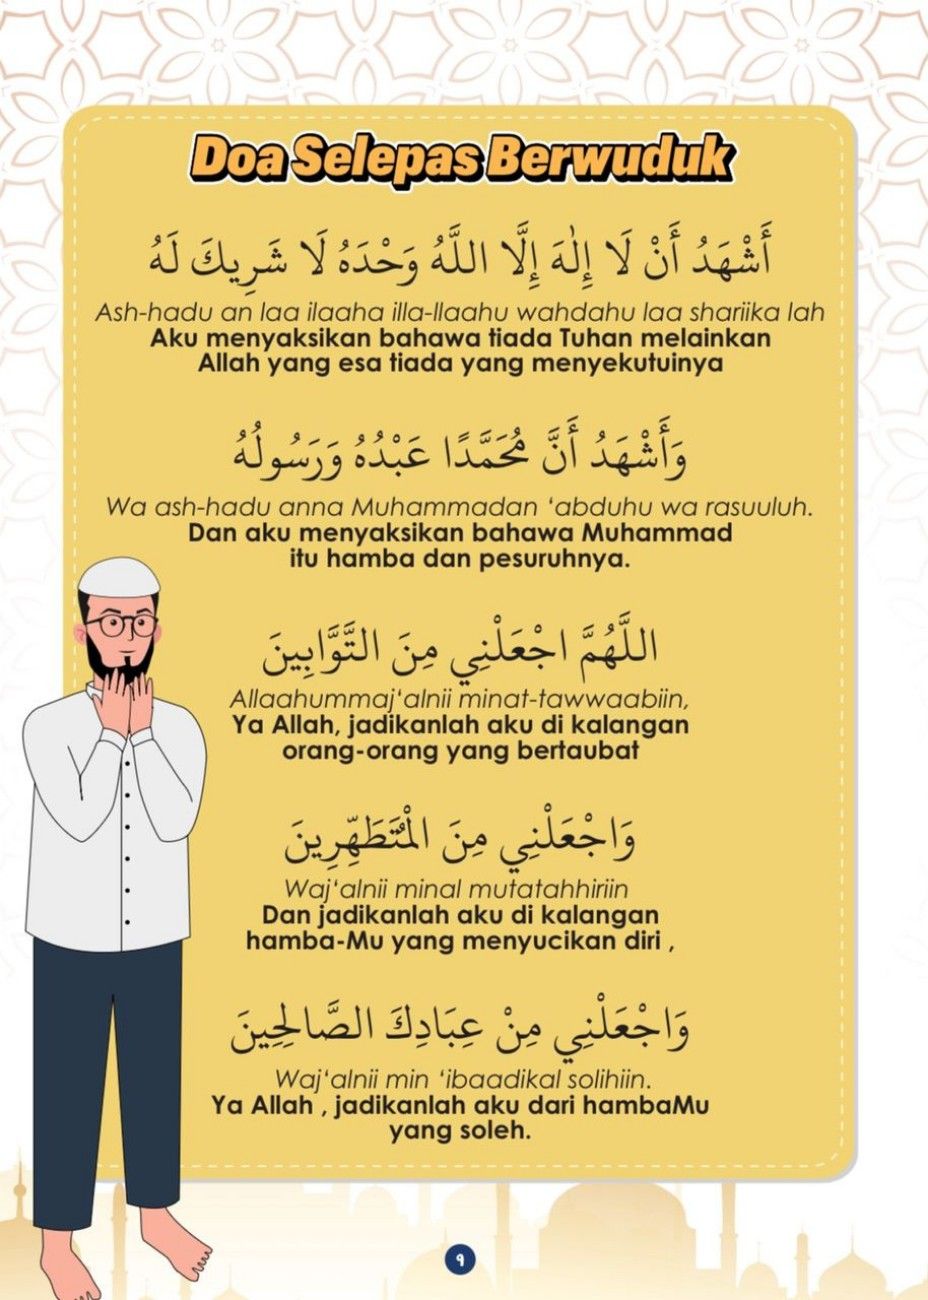 Doa Selepas Berwuduk
أَشْهَدُ أَنْ لَا إِلٰهَ إِلَّا اللَّهُ وَحْدَهُ لَا شَرِيكَ لَهُ
Ash-hadu an laa ilaaha illa-llaahu wahdahu laa shariika lah
Aku menyaksikan bahawa tiada Tuhan melainkan
Allah yang esa tiada yang menyekutuinya
وَأَشْهَدُ أَنَّ مُحَمَّدًا عَبْدُهُ وَرَسُولُهُ
Wa ash-hadu anna Muhammadan ‘abduhu wa rasuuluh.
Dan aku menyaksikan bahawa Muhammad
itu hamba dan pesuruhnya.
اللَّهُمَّ اجْعَلْنِي مِنَ التَّوَّابِينَ
Allaahummaj‘alnii minat-tawwaabiin,
Ya Allah, jadikanlah aku di kalangan
orang-orang yang bertaubat
وَاجْعَلْنِي مِنَ الْمُتَطَهِّرِينَ
Waj‘alnii minal mutatahhiriin
Dan jadikanlah aku di kalangan
hamba-Mu yang menyucikan diri ,
وَاجْعَلْنِي مِنْ عِبَادِكَ الصَّالِحِينَ
Waj‘alnii min ‘ibaadikal solihiin.
Ya Allah , jadikanlah aku dari hambaMu
yang soleh.
٩